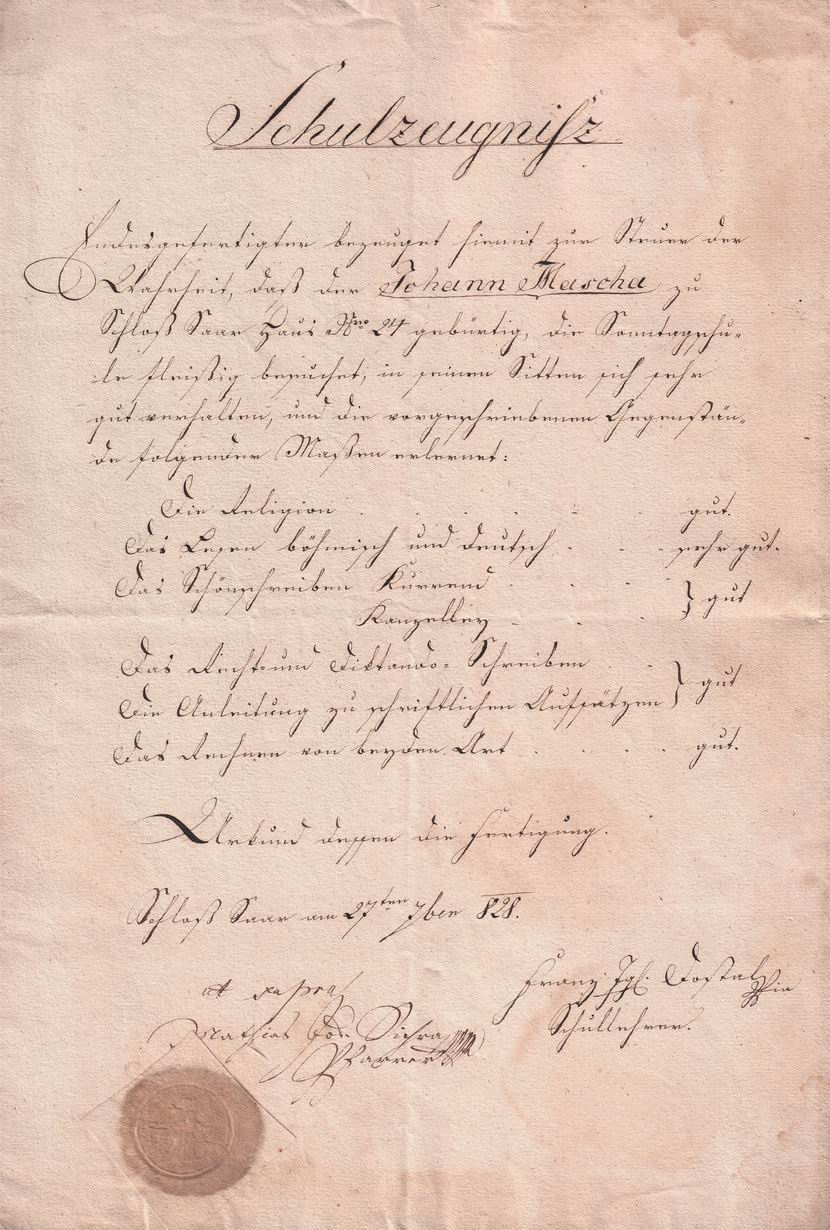 Schulzeugniß
Endesgefertigter bezeuget hiemit zur Steuer der
Wahrheit, daß der Johann Mascha zu
Schloß Saar Haus Nro 24 gebürtig, die Sonntagschu-
le fleißig besuchet, in seinen Sitten sich sehr
gut verhalten, und die vorgeschriebenen Gegenstän-
de folgender Maßen erlernet:
Die Religion . . . . . . gut.
Das Lesen böhmisch und deutsch . . . sehr gut.
Das Schönschreiben Kurrend . . . } gut
Kanzelley . . .
Das Recht- und Diktando- Schreiben . . } gut
Die Anleitung zu schriftlichen Aufsätzen
Das Rechnen von beyden Art . . . . gut.
Urkund dessen die Fertigung.
Schloß Saar am 27ten 7ber 828.
ut supra
Franz Dostal
Mathias Jos. Sichra
Schullehrer.
Pfarrer